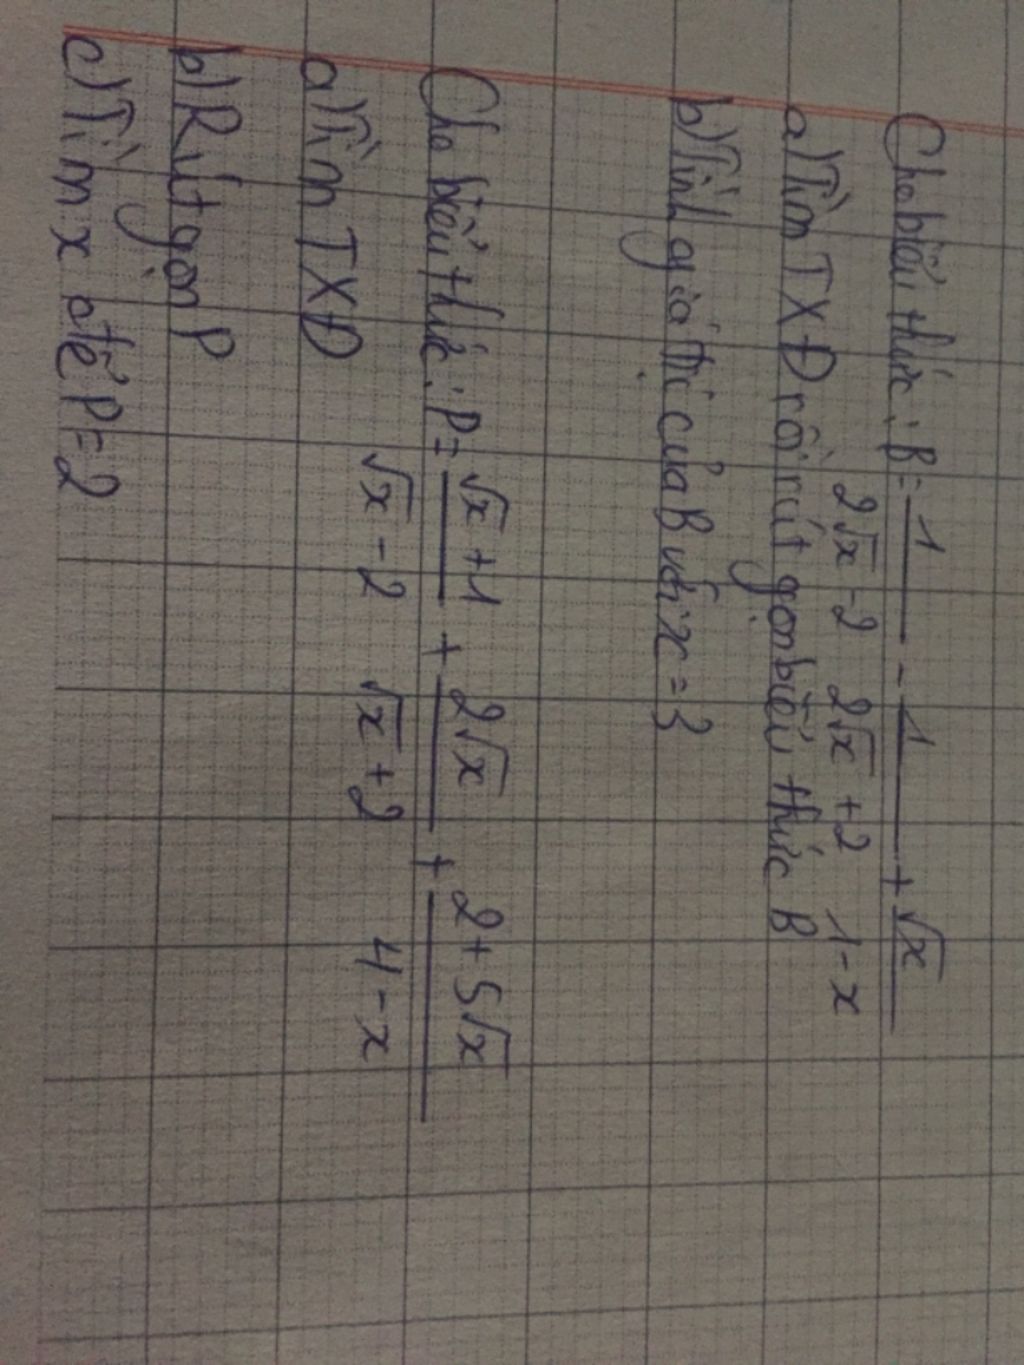 Cho biểu thức: B = 1/(2√x - 2) - 1/(2√x + 2) + √x/(1 - x)
a) Tìm TXĐ rồi rút gọn biểu thức B
b) Tính giá trị của B với x = 3
Cho biểu thức: P = (√x + 1)/(√x - 2) + 2√x/(√x + 2) + (2 + 5√x)/(4 - x)
a) Tìm TXĐ
b) Rút gọn P
c) Tìm x để P = 2